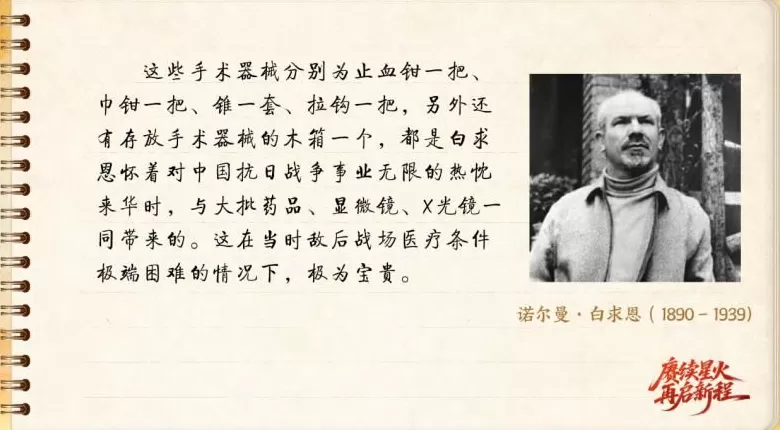 这些手术器械分别为止血钳一把、
巾钳一把、锥一套、拉钩一把，另外还
有存放手术器械的木箱一个，都是白求
恩怀着对中国抗日战争事业无限的热忱
来华时，与大批药品、显微镜、X光镜一
同带来的。这在当时敌后战场医疗条件
极端困难的情况下，极为宝贵。
诺尔曼·白求恩（1890－1939）
赓续星火
再启新程